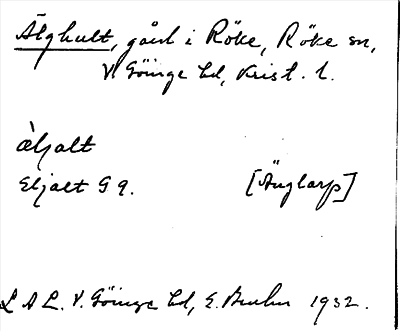 Älghult, gård i Röke, Röke sn,
V. Göinge hd, Krist. l.
äljalt
Eljalt G 9.
[Änglarp]
L A L. V. Göinge hd, E. Bruhn 1932.